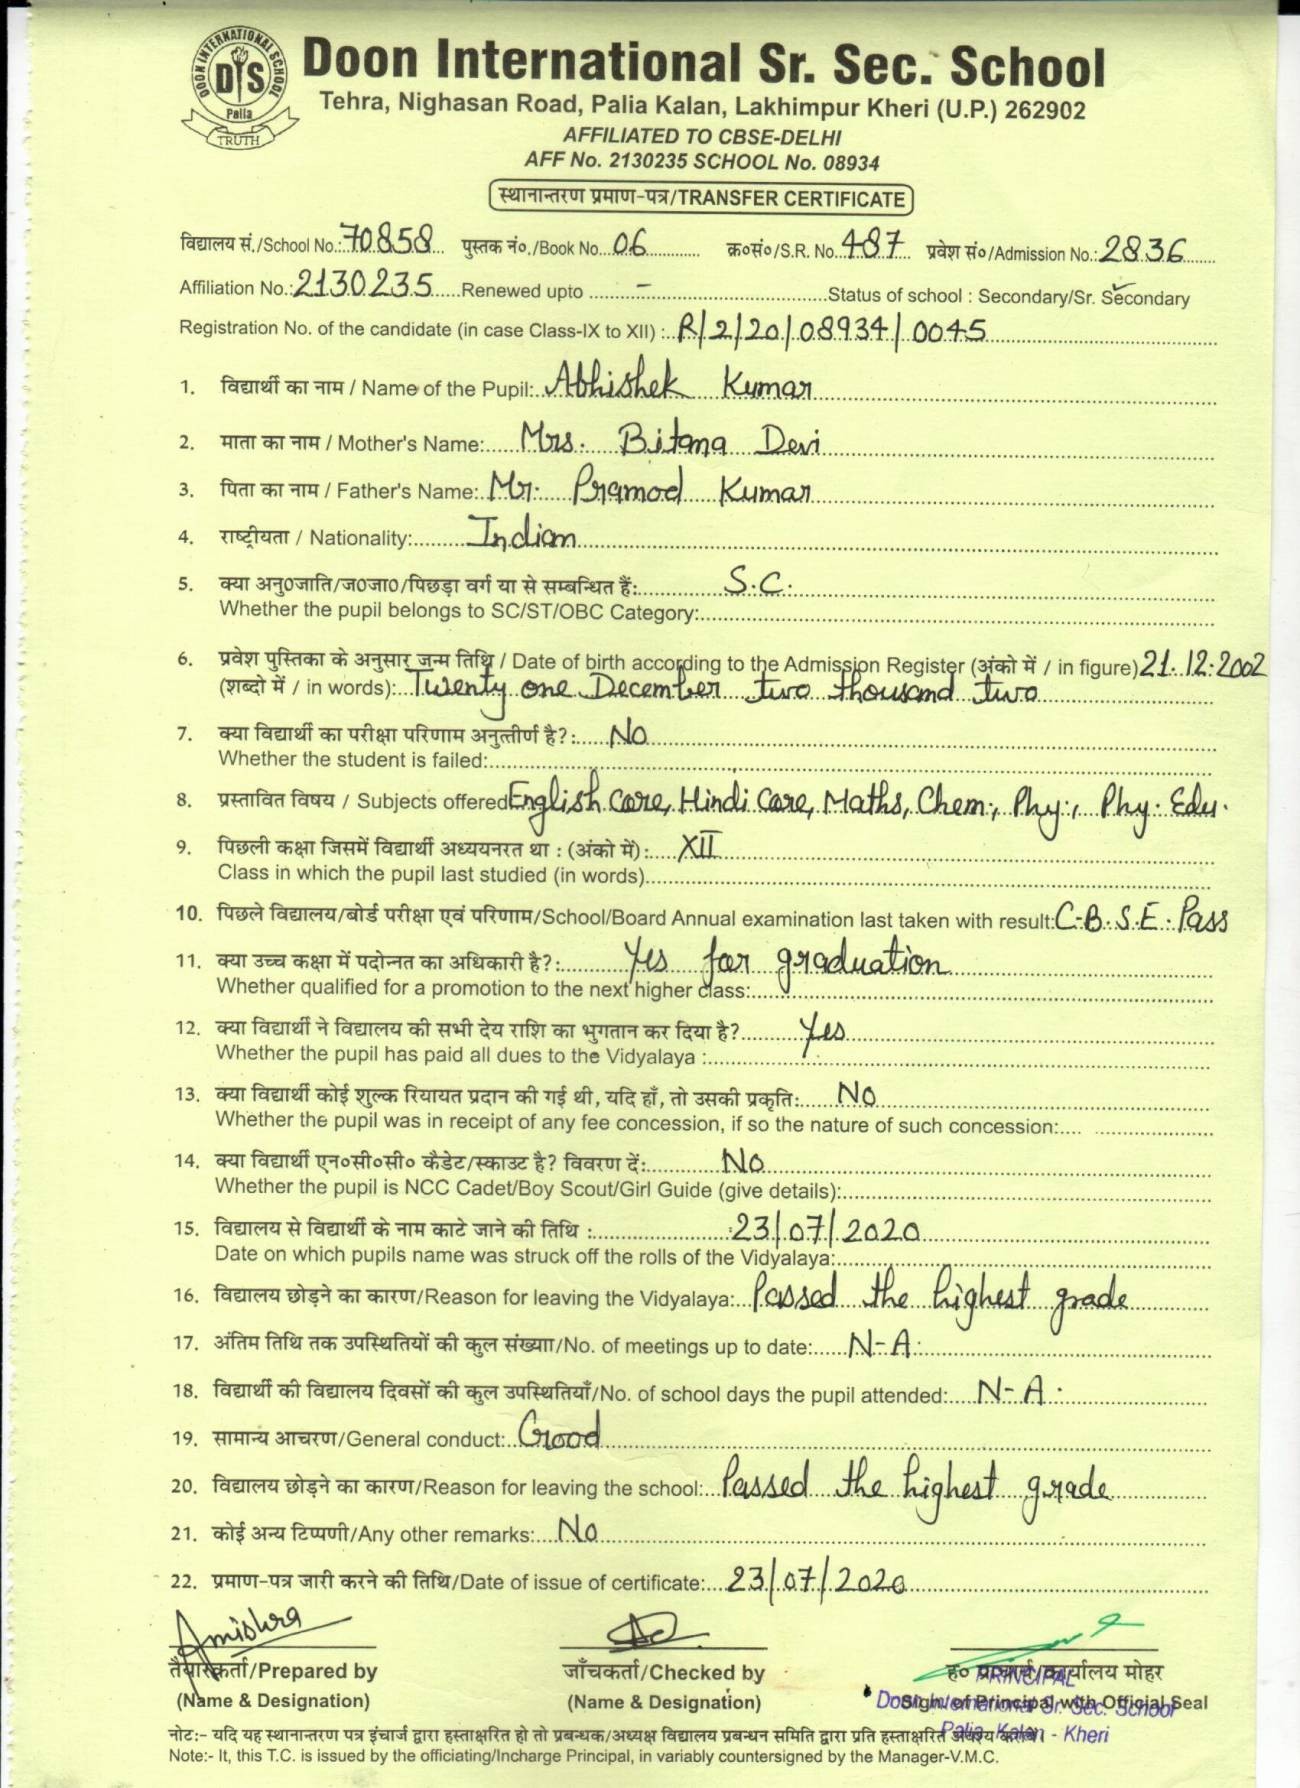 DOON INTERNATIONAL SCHOOL
DIS
Palia
TRUTH
Doon International Sr. Sec. School
Tehra, Nighasan Road, Palia Kalan, Lakhimpur Kheri (U.P.) 262902
AFFILIATED TO CBSE-DELHI
AFF No. 2130235 SCHOOL No. 08934
स्थानान्तरण प्रमाण-पत्र/TRANSFER CERTIFICATE
विद्यालय सं./School No.: 70858 पुस्तक नं०./Book No. 06 क्र०सं०/S.R. No. 487 प्रवेश सं०/Admission No.: 2836
Affiliation No.: 2130235 Renewed upto - Status of school : Secondary/Sr. Secondary
Registration No. of the candidate (in case Class-IX to XII) : R/2/20/08934/0045
1. विद्यार्थी का नाम / Name of the Pupil: Abhishek Kumar
2. माता का नाम / Mother's Name: Mrs. Bitana Devi
3. पिता का नाम / Father's Name: Mr. Pramod Kumar
4. राष्ट्रीयता / Nationality: Indian
5. क्या अनु0जाति/ज0जा0/पिछड़ा वर्ग या से सम्बन्धित हैं: S.C.
Whether the pupil belongs to SC/ST/OBC Category:
6. प्रवेश पुस्तिका के अनुसार जन्म तिथि / Date of birth according to the Admission Register (अंको में / in figure) 21.12.2002
(शब्दो में / in words): Twenty one December two thousand two
7. क्या विद्यार्थी का परीक्षा परिणाम अनुत्तीर्ण है?: No
Whether the student is failed:
8. प्रस्तावित विषय / Subjects offered English Core, Hindi Core, Maths, Chem., Phy., Phy. Edu.
9. पिछली कक्षा जिसमें विद्यार्थी अध्ययनरत था : (अंको में): XII
Class in which the pupil last studied (in words)
10. पिछले विद्यालय/बोर्ड परीक्षा एवं परिणाम/School/Board Annual examination last taken with result: C.B.S.E. Pass
11. क्या उच्च कक्षा में पदोन्नत का अधिकारी है?: Yes for graduation
Whether qualified for a promotion to the next higher class:
12. क्या विद्यार्थी ने विद्यालय की सभी देय राशि का भुगतान कर दिया है? Yes
Whether the pupil has paid all dues to the Vidyalaya :
13. क्या विद्यार्थी कोई शुल्क रियायत प्रदान की गई थी, यदि हाँ, तो उसकी प्रकृति: No
Whether the pupil was in receipt of any fee concession, if so the nature of such concession:
14. क्या विद्यार्थी एन०सी०सी० कैडेट/स्काउट है? विवरण दें: No
Whether the pupil is NCC Cadet/Boy Scout/Girl Guide (give details):
15. विद्यालय से विद्यार्थी के नाम काटे जाने की तिथि : 23/07/2020
Date on which pupils name was struck off the rolls of the Vidyalaya:
16. विद्यालय छोड़ने का कारण/Reason for leaving the Vidyalaya: Passed the highest grade
17. अंतिम तिथि तक उपस्थितियों की कुल संख्या/No. of meetings up to date: N-A.
18. विद्यार्थी की विद्यालय दिवसों की कुल उपस्थितियाँ/No. of school days the pupil attended: N-A.
19. सामान्य आचरण/General conduct: Good
20. विद्यालय छोड़ने का कारण/Reason for leaving the school: Passed the highest grade
21. कोई अन्य टिप्पणी/Any other remarks: No
22. प्रमाण-पत्र जारी करने की तिथि/Date of issue of certificate: 23/07/2020
Amishra
तैयारकर्ता/Prepared by जाँचकर्ता/Checked by ह० प्राचार्य/कार्यालय मोहर
PRINCIPAL
(Name & Designation) (Name & Designation) Sign. of Principal with Official Seal
Doon International Sr. Sec. School
Palia-Kalan - Kheri
नोट:- यदि यह स्थानान्तरण पत्र इंचार्ज द्वारा हस्ताक्षरित हो तो प्रबन्धक/अध्यक्ष विद्यालय प्रबन्धन समिति द्वारा प्रति हस्ताक्षरित अवश्य
Note:- It, this T.C. is issued by the officiating/Incharge Principal, in variably countersigned by the Manager-V.M.C.